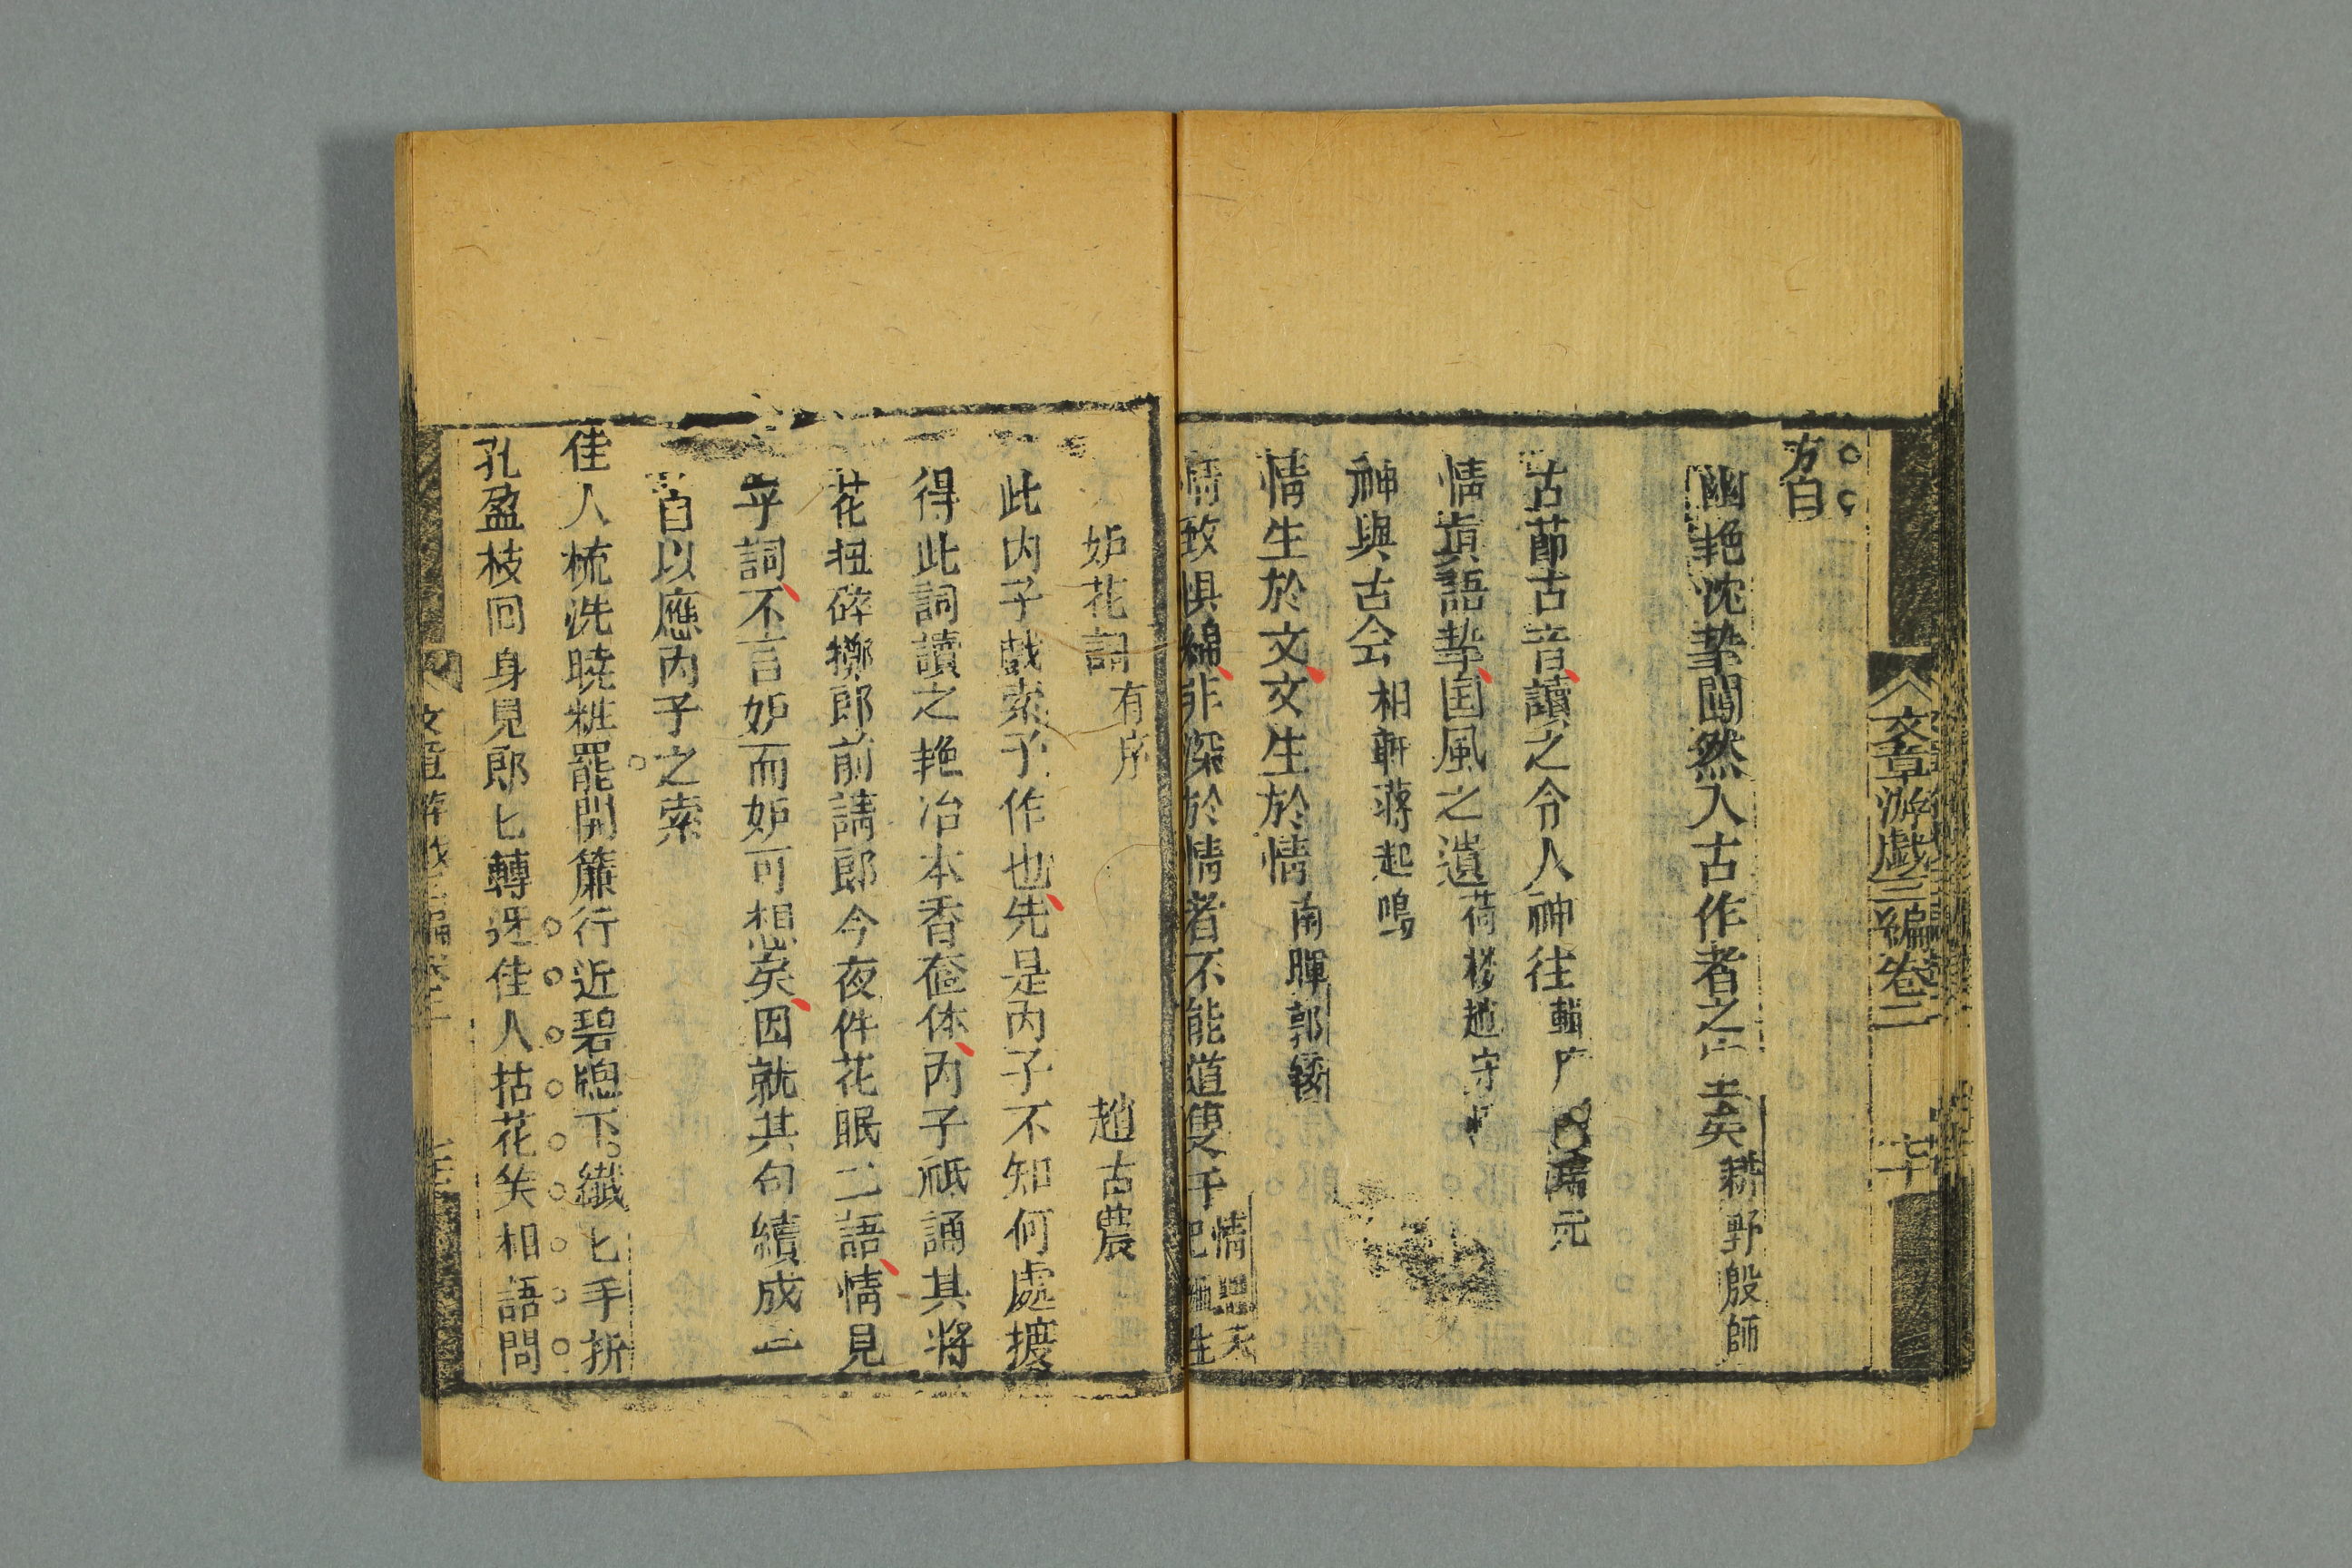 文章游戲三編卷二 七十
方白
幽艳沈摯闖然入古作者之 矣 耕野殷師
古莭古音讀之令人神徃 輯 元
情真語摯国風之遺 荷 趙守
神與古会 相軒蔣起鳴
情生於文文生於情 南暉郭
情致惧綿非深於情者不能道隻字
妒花詞 有序 趙古農
此内子戲索予作也先是内子不知何處摭
得此詞讀之艳冶本香奩体内子祇誦其將
花扭碎擲郎前請郎今夜伴花眠二語情見
乎詞不言妒而妒可想矣因就其句續成三
首以應内子之索
佳人梳洗曉粧罷開簾行近碧牕下纖匕手折
孔盈枝回身見郎匕轉迓佳人拈花笑相語問